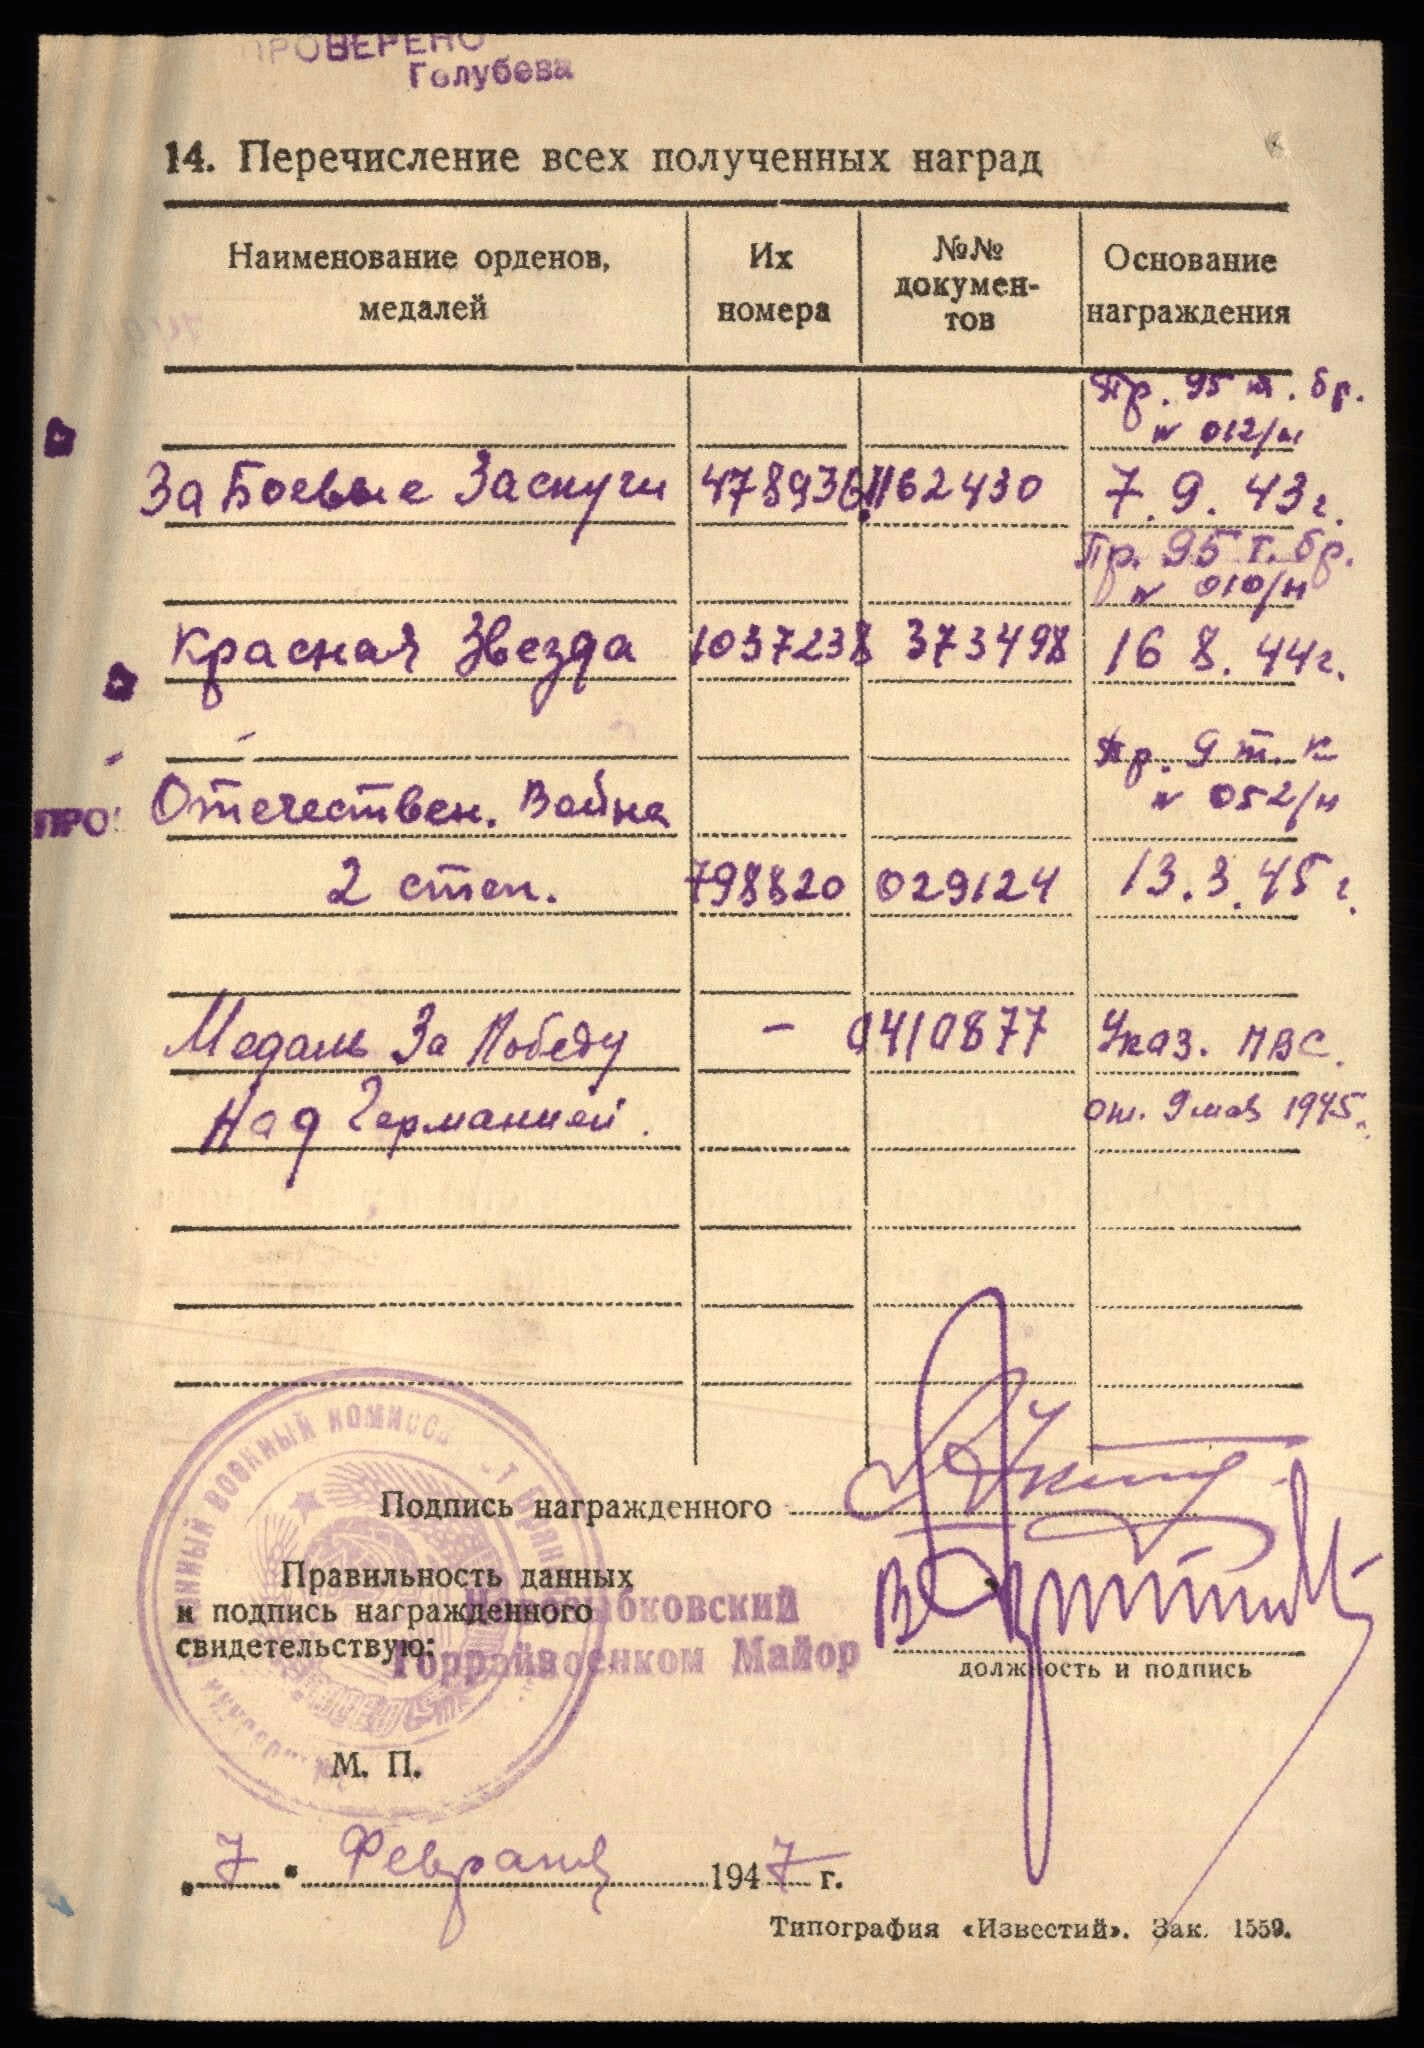 ПРОВЕРЕНО
Голубева
14. Перечисление всех полученных наград
Наименование орденов, медалей
Их номера
№№ докумен-тов
Основание награждения
Пр. 95 т. бр.
№ 012/н
За Боевые Заслуги 478936 1162430 7.9.43г.
Пр. 95 т. бр.
№ 010/н
Красная Звезда 1037238 373498 16 8.44г.
Пр. 9 т. к
ПРО Отечествен. Война № 052/н
2 степ. 798820 029124 13.3.45г.
Медаль За Победу — 0410877 Указ. ПВС.
Над Германией. от. 9 мая 1945г.
Подпись награжденного
Правильность данных
и подпись награжденного
свидетельствую:
Горрайвоенком Майор
должность и подпись
М. П.
„7" Февраля 1947 г.
Типография «Известий». Зак. 1559.